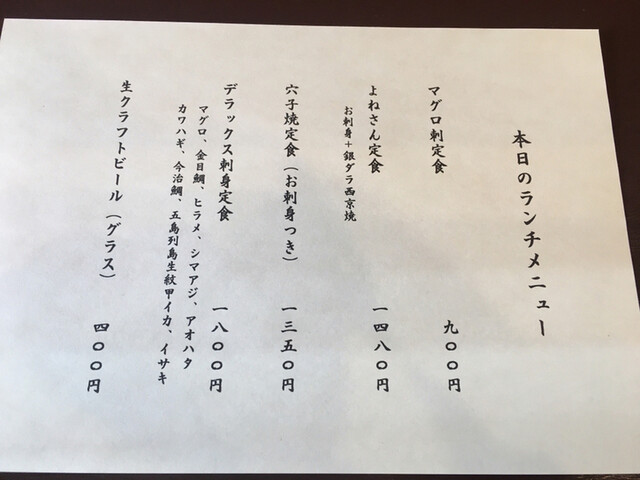 本日のランチメニュー
マグロ刺定食 九〇〇円
よねさん定食 一四八〇円
お刺身+銀ダラ西京焼
穴子焼定食(お刺身つき) 一三五〇円
デラックス刺身定食 一八〇〇円
マグロ、金目鯛、ヒラメ、シマアジ、アオハタ
カワハギ、今治鯛、五島列島生紋甲イカ、イサキ
生クラフトビール(グラス) 四〇〇円